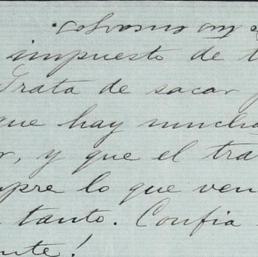 impuesto de t
Trata de sacar
que hay mucha
r, y que el tra
mpre lo que ven
tanto. Confia
nte!